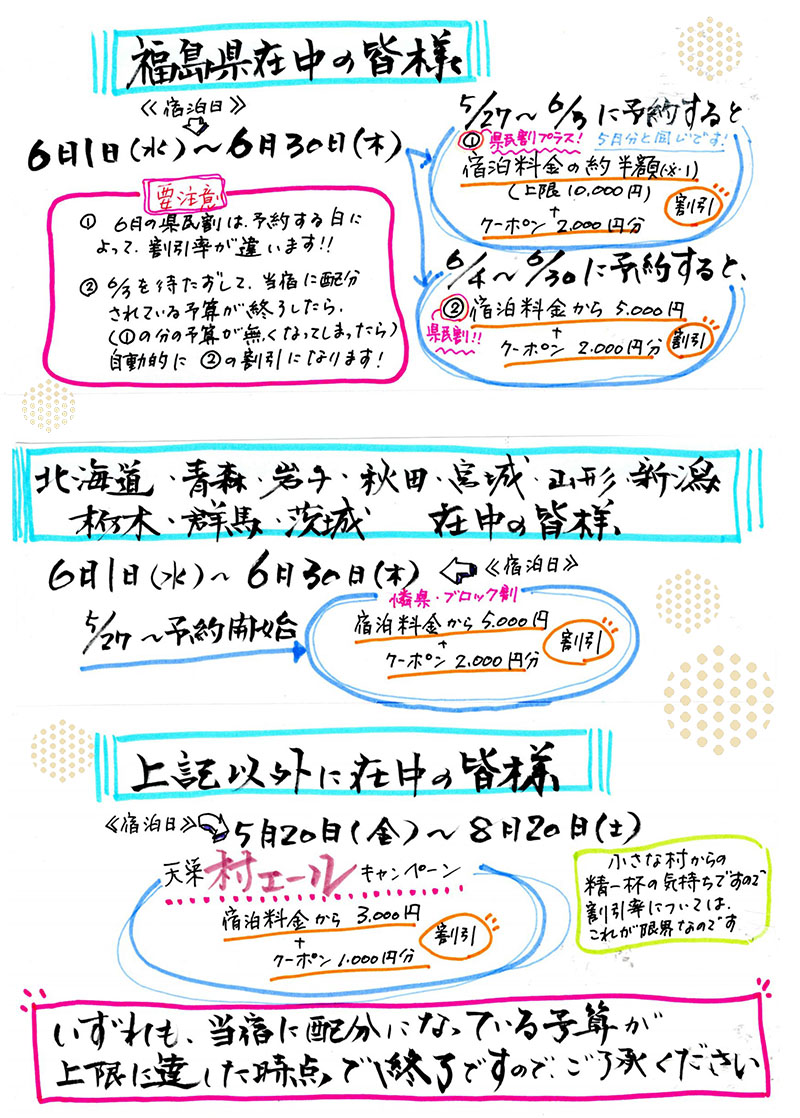 福島県在中の皆様
≪宿泊日≫
6月1日(水)～6月30日(木)
5/27～6/3に予約すると
① 県民割プラス! 5月分と同じです!
宿泊料金の約半額(※1)
(上限10,000円)
+
クーポン2,000円分
割引
要注意
① 6月の県民割は、予約する日に
よって、割引率が違います!!
② 6/3を待たずして、当宿に配分
されている予算が終了したら、
(①の分の予算が無くなってしまったら)
自動的に②の割引になります!
6/4～6/30に予約すると、
② 宿泊料金から5,000円
県民割!!
+
クーポン2,000円分
割引
北海道・青森・岩手・秋田・宮城・山形・新潟
栃木・群馬・茨城 在中の皆様
6月1日(水)～6月30日(木)
≪宿泊日≫
5/27～予約開始
隣県・ブロック割
宿泊料金から5,000円
+
クーポン2,000円分
割引
上記以外に在中の皆様
≪宿泊日≫
5月20日(金)～8月20日(土)
天栄村エールキャンペーン
宿泊料金から3,000円
+
クーポン1,000円分
割引
小さな村からの
精一杯の気持ちですので
割引率については、
これが限界なのです
いずれも、当宿に配分になっている予算が
上限に達した時点で終了ですので、ご了承ください